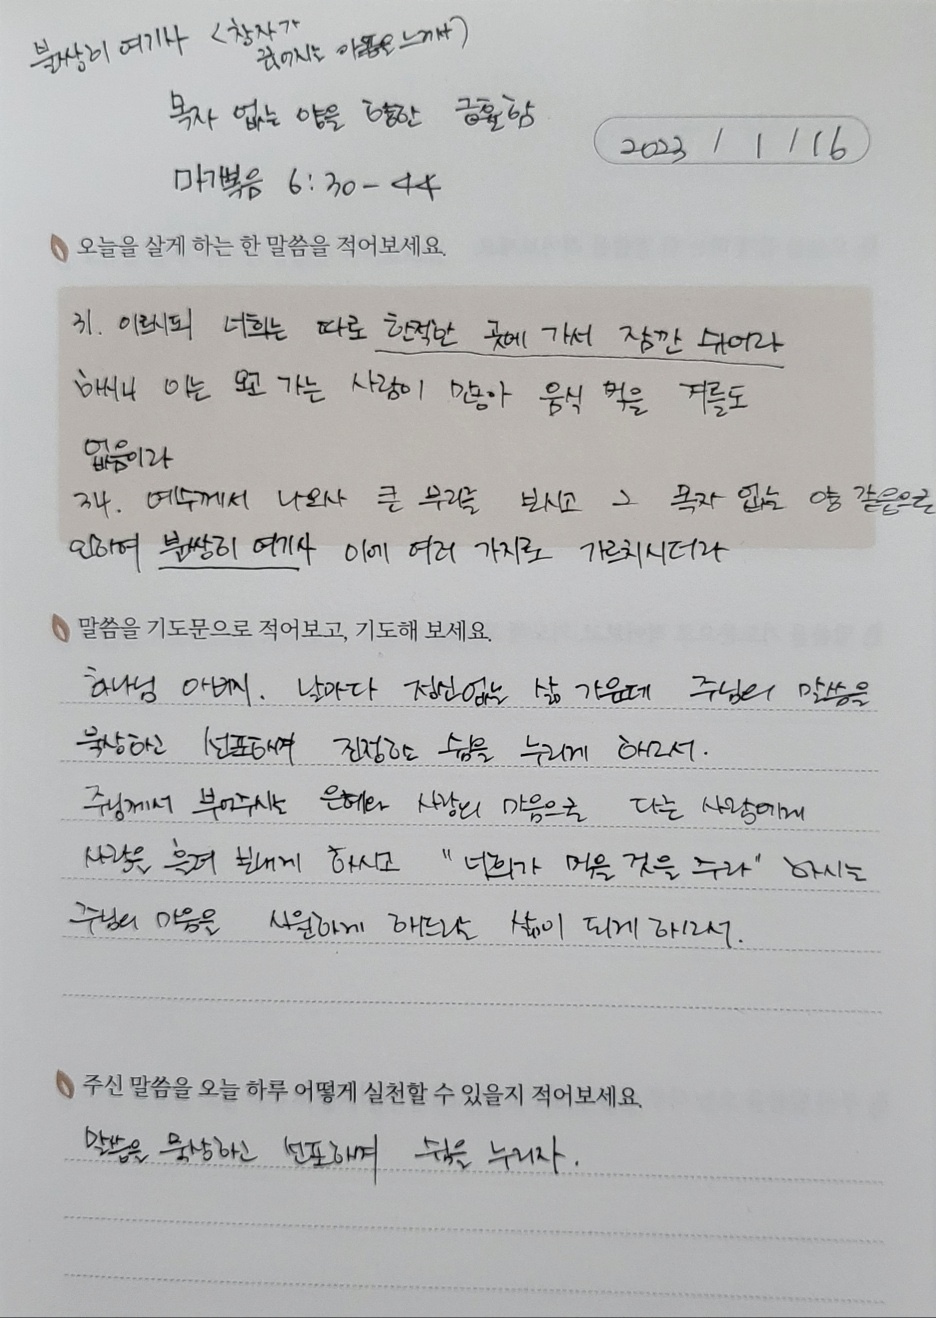 불쌍히 여기사 <창자가
끊어지는 아픔을 느끼사)
목자 없는 양을 향한 긍휼함
2023 / 1 / 16
마가복음 6:30-44
오늘을 살게 하는 한 말씀을 적어보세요.
31. 이르시되 너희는 따로 한적한 곳에 가서 잠깐 쉬어라
하시니 이는 오고 가는 사람이 많아 음식 먹을 겨를도
없음이라
34. 예수께서 나오사 큰 무리를 보시고 그 목자 없는 양 같음으로
인하여 불쌍히 여기사 이에 여러 가지로 가르치시더라
말씀을 기도문으로 적어보고, 기도해 보세요.
하나님 아버지. 날마다 정신없는 삶 가운데 주님의 말씀을
묵상하고 선포하며 진정한 쉼을 누리게 하소서.
주님께서 부어주시는 은혜와 사랑의 마음으로 다른 사람에게
사랑을 흘려 보내게 하시고 "너희가 먹을 것을 주라" 하시는
주님의 마음을 시원하게 해드리는 삶이 되게 하소서.
주신 말씀을 오늘 하루 어떻게 실천할 수 있을지 적어보세요.
말씀을 묵상하고 선포하며 쉼을 누리자.